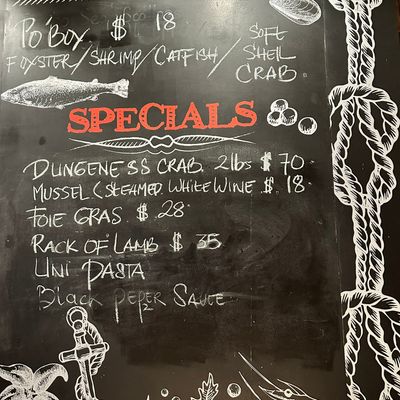 Po'Boy $ 18
F OYSTER/SHRIMP/CATFISH/ SOFT SHELL CRAB
SPECIALS
DUNGENESS CRAB 2lbs $ 70
MUSSEL (STEAMED WHITE WINE $ 18
FOIE GRAS $ 28
RACK OF LAMB $ 35
UNI PASTA
Black PEPER SAUCE